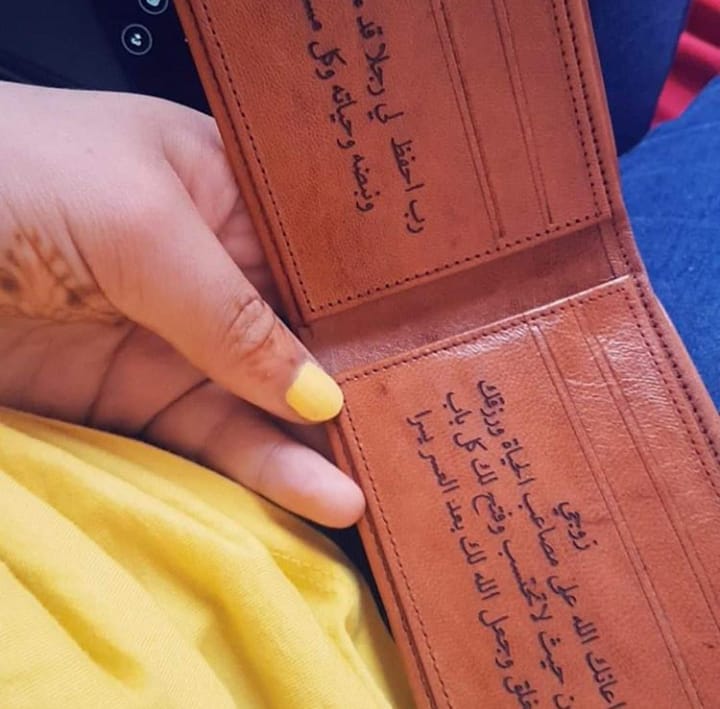 رب احفظ لي رجلا قد
ونبضه وحياته وكل
زوجي
اعانك الله على مصاعب الحياة ورزقك
ن حيث لا تحتسب وفتح لك كل باب
غلق وجعل الله لك بعد العسر يسرا